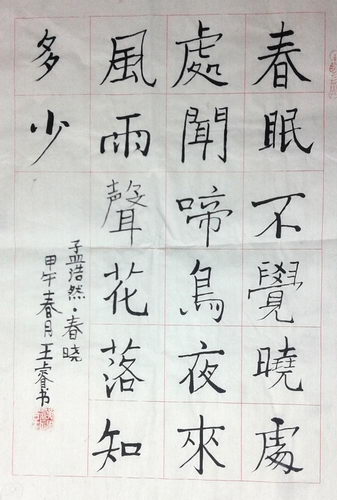 春眠不覺曉處
處聞啼鳥夜來
風雨聲花落知
多少
孟浩然·春晓
甲午春月王睿书